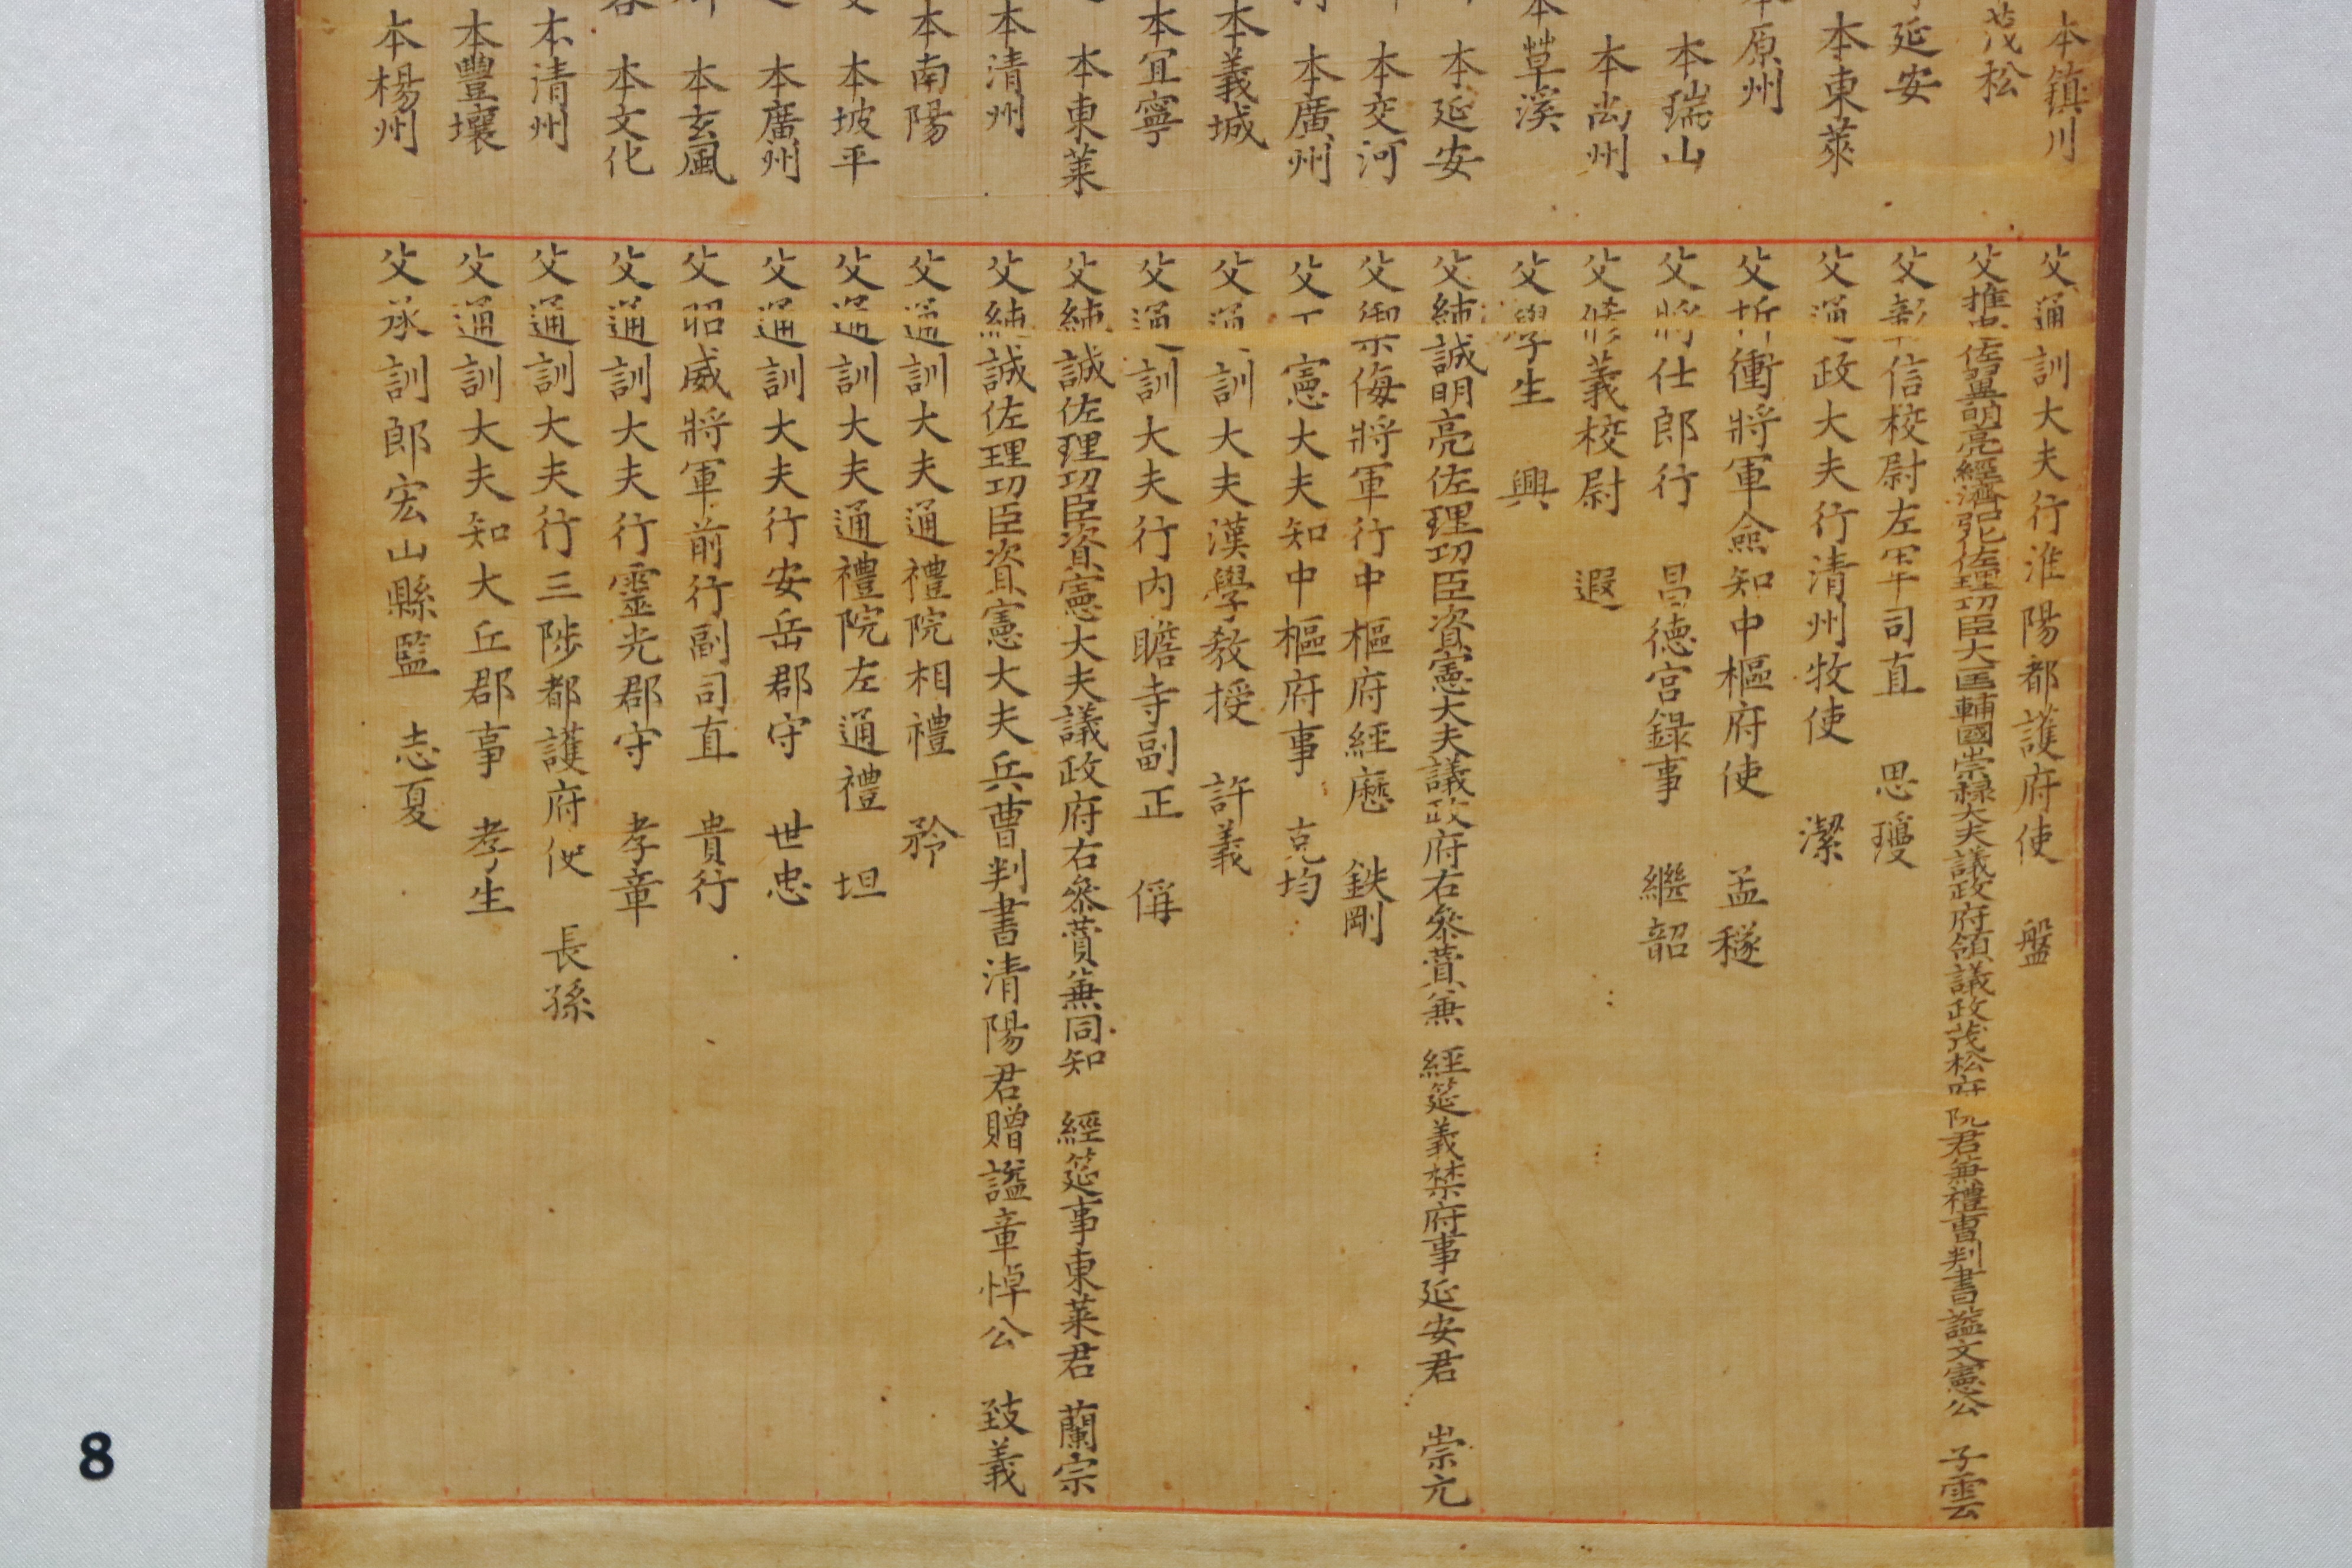 本鎮川
茂松
延安
本東萊
本原州
本瑞山
本尚州
本草溪
本延安
本交河
本廣州
本義城
本宜寧
本東萊
本清州
本南陽
本坡平
本廣州
本玄風
本文化
本清州
本豐壤
本楊州
父通訓大夫行淮陽都護府使 盤
父推忠佐翼明亮經濟弘化佐理功臣大匡輔國崇祿大夫議政府領議政茂松府院君兼禮曹判書謚文憲公 子雲
父彰信校尉左軍司直 思瓊
父通政大夫行清州牧使 潔
父折衝將軍僉知中樞府使 孟穟
父將仕郎行 昌德宮錄事 繼韶
父修義校尉 遐
父學生 興
父純誠明亮佐理功臣資憲大夫議政府右參贊兼 經筵義禁府事延安君 崇元
父禦侮將軍行中樞府經歷 鉄剛
父 憲大夫知中樞府事 克均
父通訓大夫漢學教授 許義
父通訓大夫行內贍寺副正 偁
父純誠佐理功臣資憲大夫議政府右參贊兼同知 經筵事東萊君 蘭宗
父純誠佐理功臣資憲大夫兵曹判書清陽君贈謚章悼公 致義
父通訓大夫通禮院相禮 矜
父通訓大夫通禮院左通禮 坦
父通訓大夫行安岳郡守 世忠
父昭威將軍前行副司直 貴行
父通訓大夫行靈光郡守 孝章
父通訓大夫行三陟都護府使 長孫
父通訓大夫知大丘郡事 孝生
父承訓郎宏山縣監 志夏
8